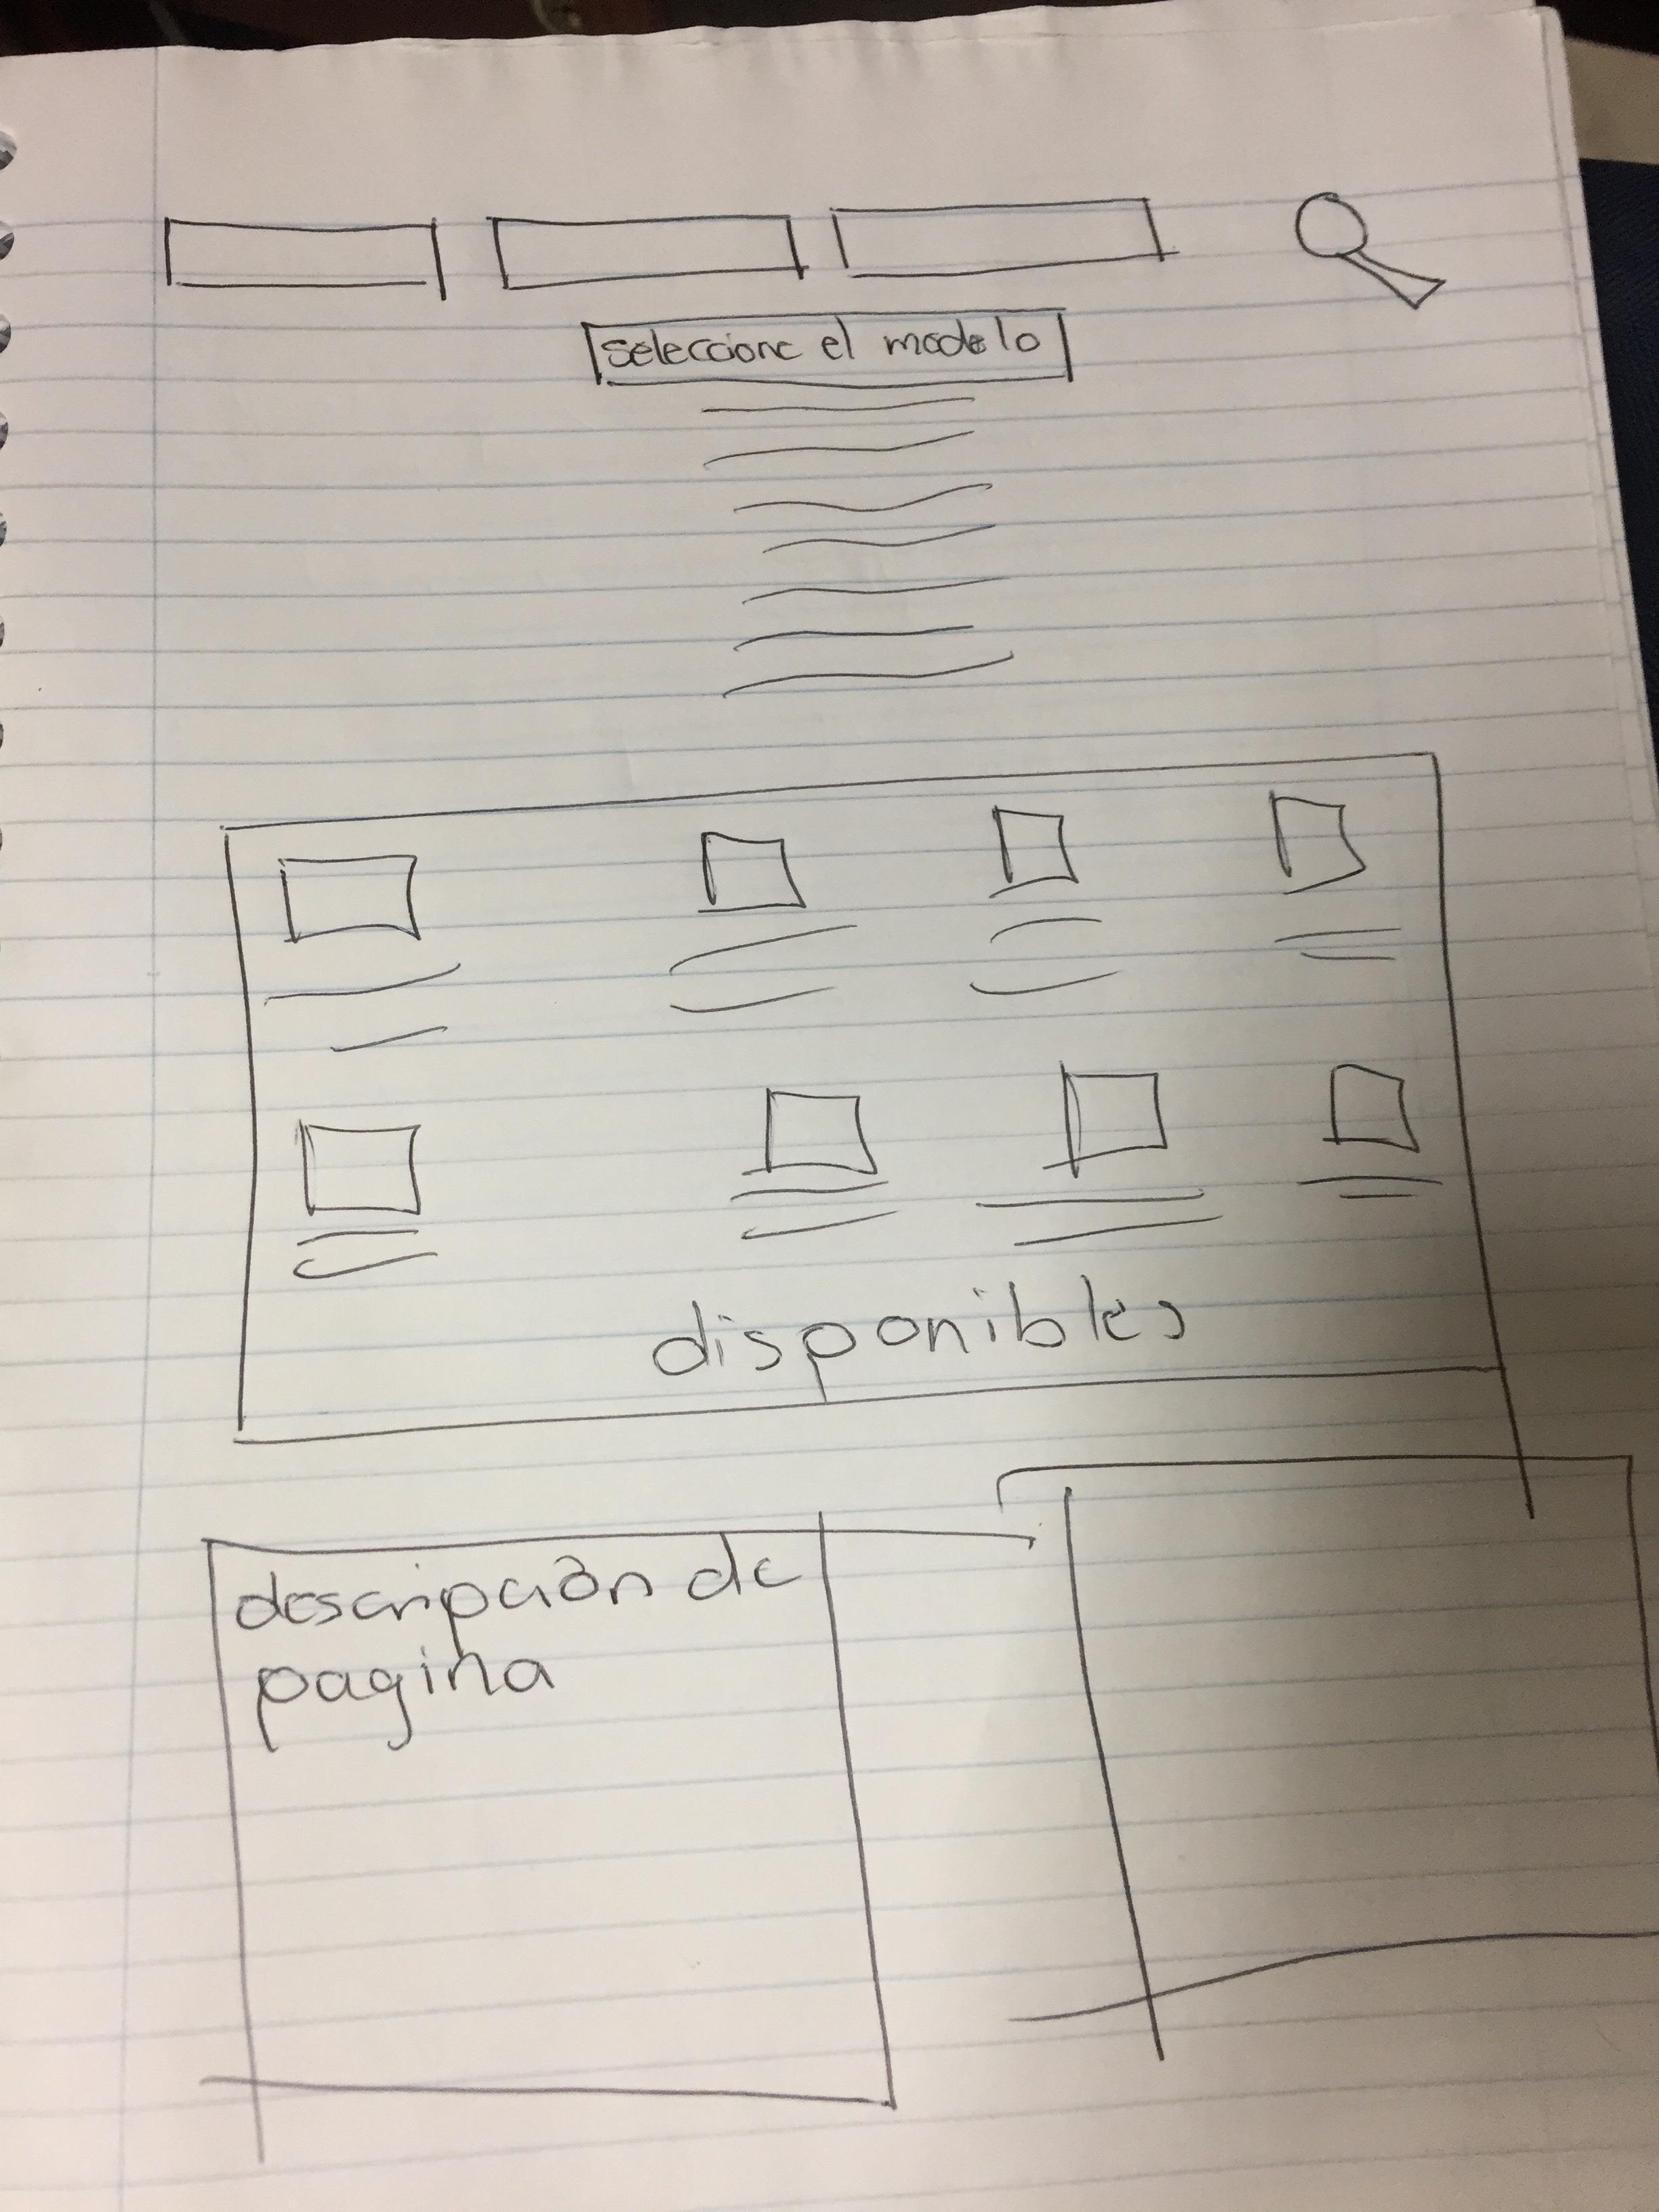 seleccione el modelo
disponibles
descripción de
pagina